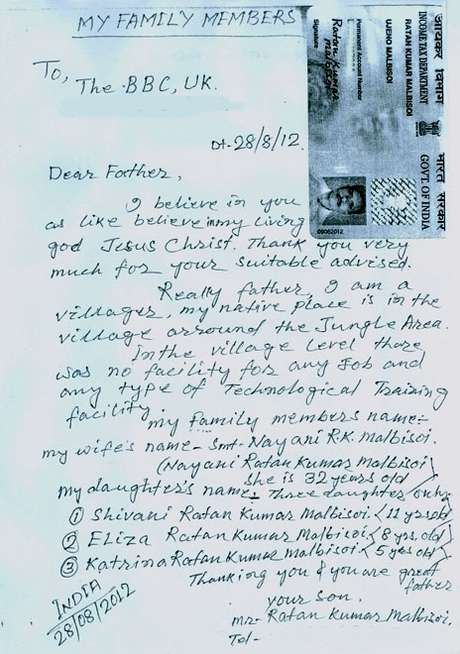 MY FAMILY MEMBERS
To,
The BBC, UK.
Dt-28/8/12.
Dear Father,
I believe in you
as like believe in my living
god Jesus Christ. Thank you very
much for your suitable advised.
Really father, I am a
villager, my native place is in the
village arround the Jungle Area.
In the village level there
was no facility for any Job and
any type of Technological Training
facility.
my Family members name:-
my wife's name - Smt - Nayani R.K. Malbisoi.
(Nayani Ratan Kumar Malbisoi)
she is 32 years old
my daughter's name - Three daughter only
① Shivani Ratan Kumar Malbisoi (11 yrs old)
② Eliza Ratan Kumar Malbisoi (8 yrs. old)
③ Katrina Ratan Kumar Malbisoi (5 yrs old)
Thanking you & you are great
father
your son.
Mr- Ratan Kumar Malbisoi.
Tel-
INDIA
28/08/2012
आयकर विभाग
INCOME TAX DEPARTMENT
RATAN KUMAR MALBISOI
UJENO MALBISOI
Permanent Account Number
Ratan Kumar
Malbisoi
Signature
भारत सरकार
GOVT. OF INDIA
09062012